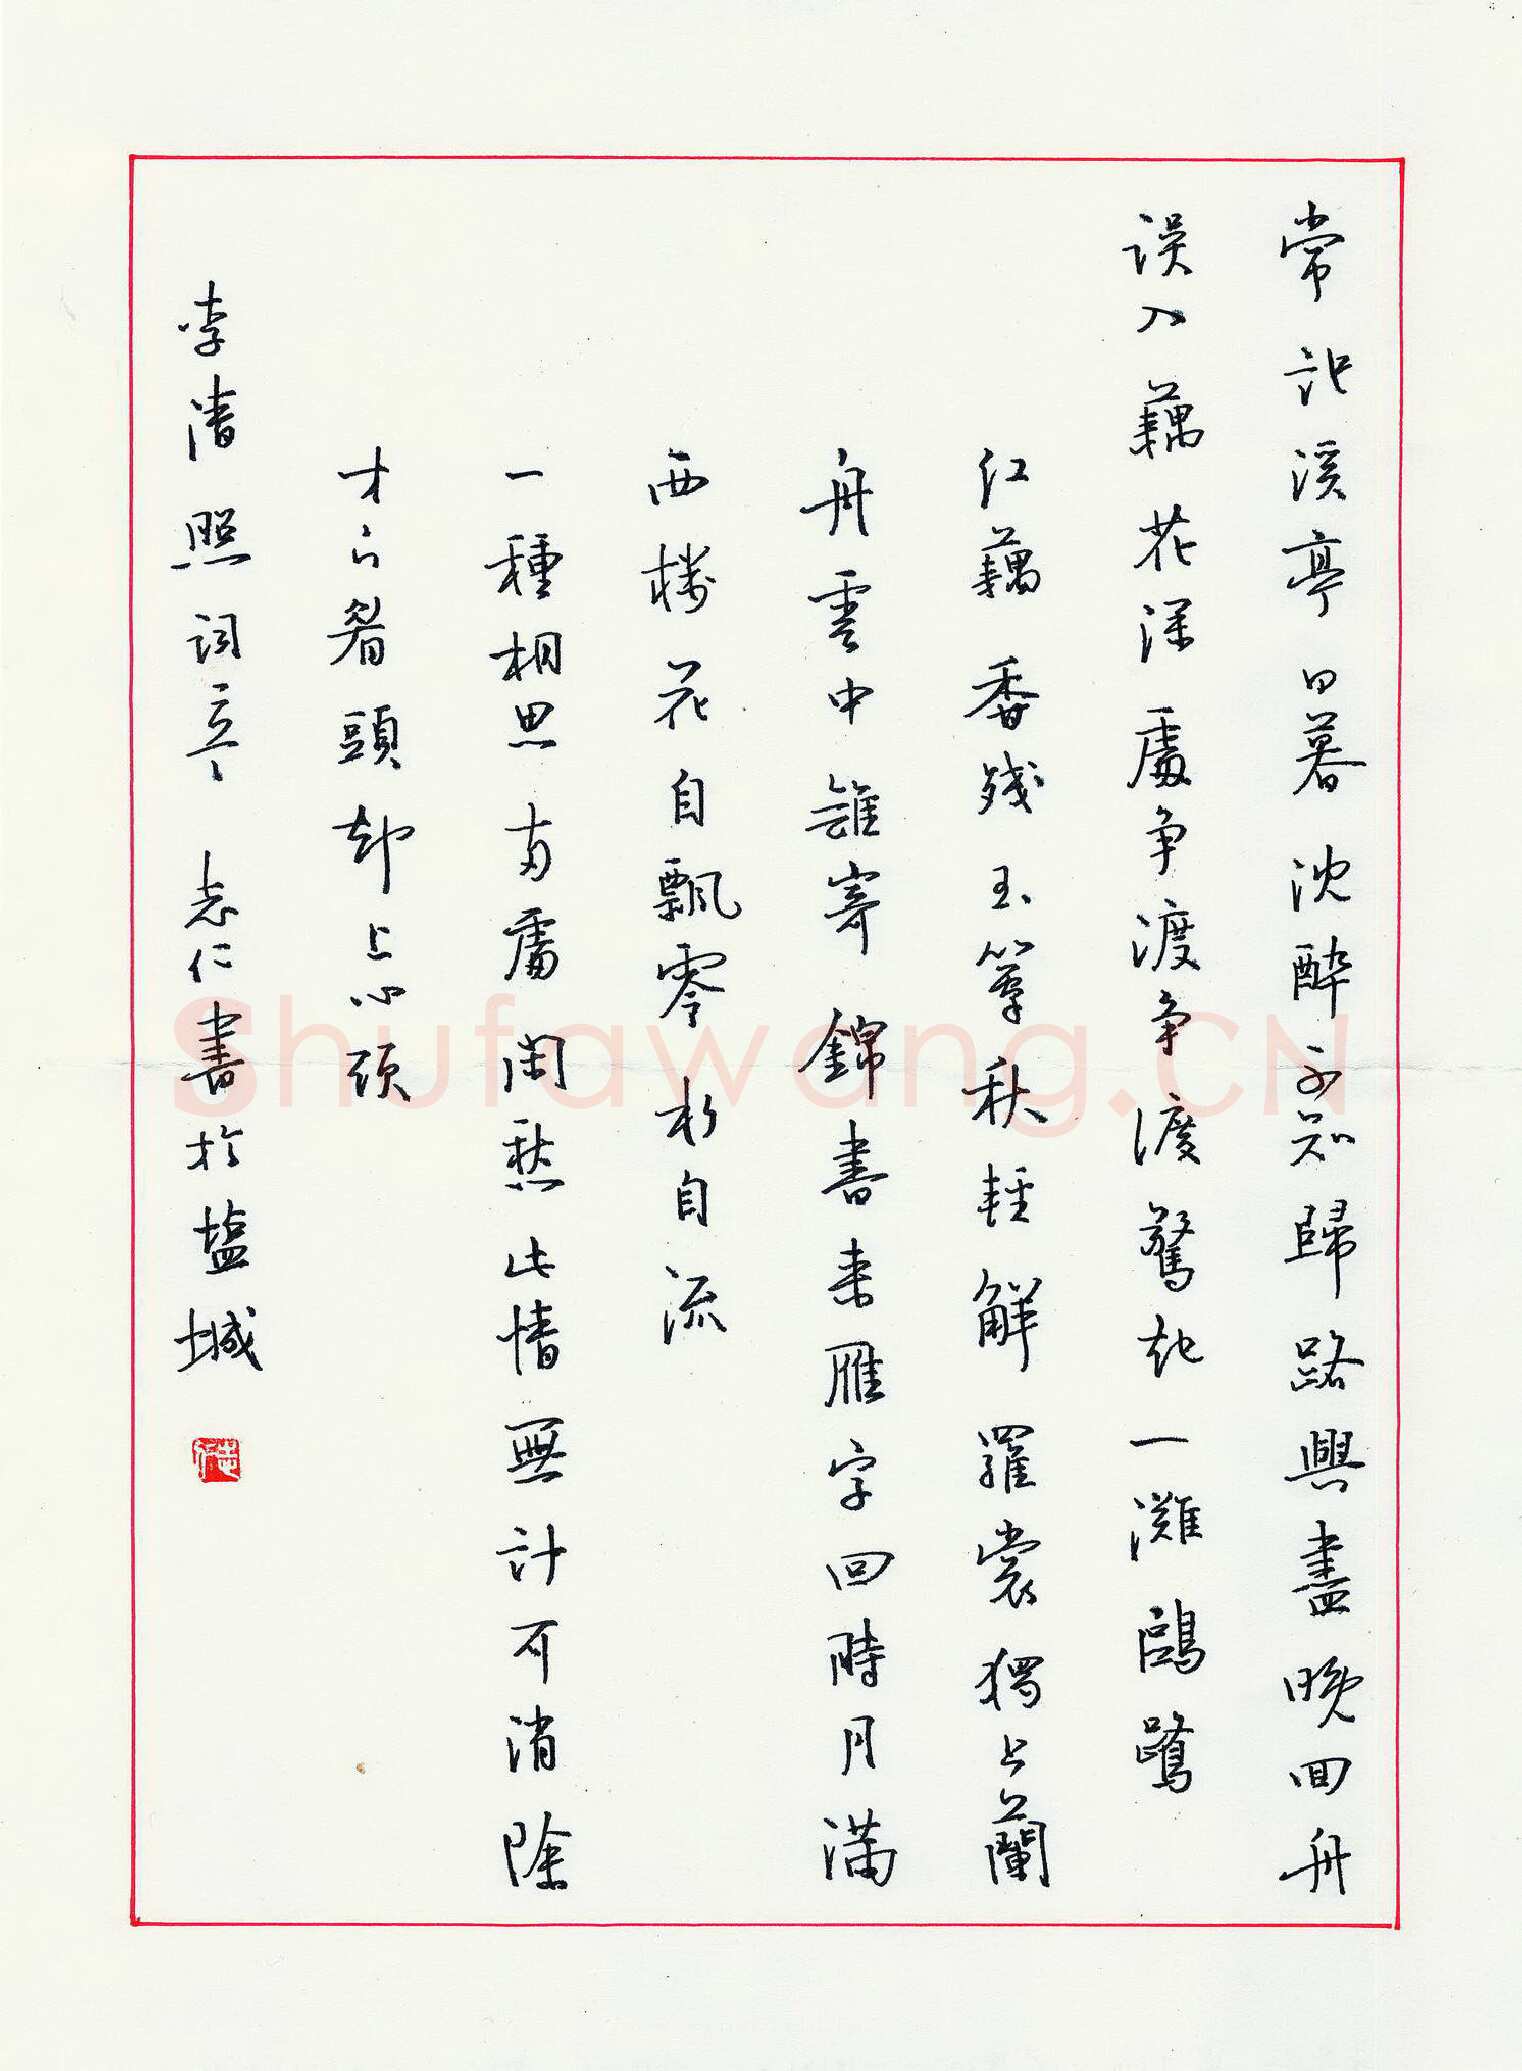 常記溪亭日暮沈醉不知歸路興盡晚回舟
误入藕花深處争渡争渡驚起一灘鷗鷺
红藕香殘玉簟秋輕解羅裳獨上蘭
舟雲中誰寄錦書来雁字回時月满
西楼花自飄零水自流
一種相思两處閑愁此情無計可消除
才下眉頭却上心頭
李清照词章 志仁書於塩城
志仁
Shufawang.CN